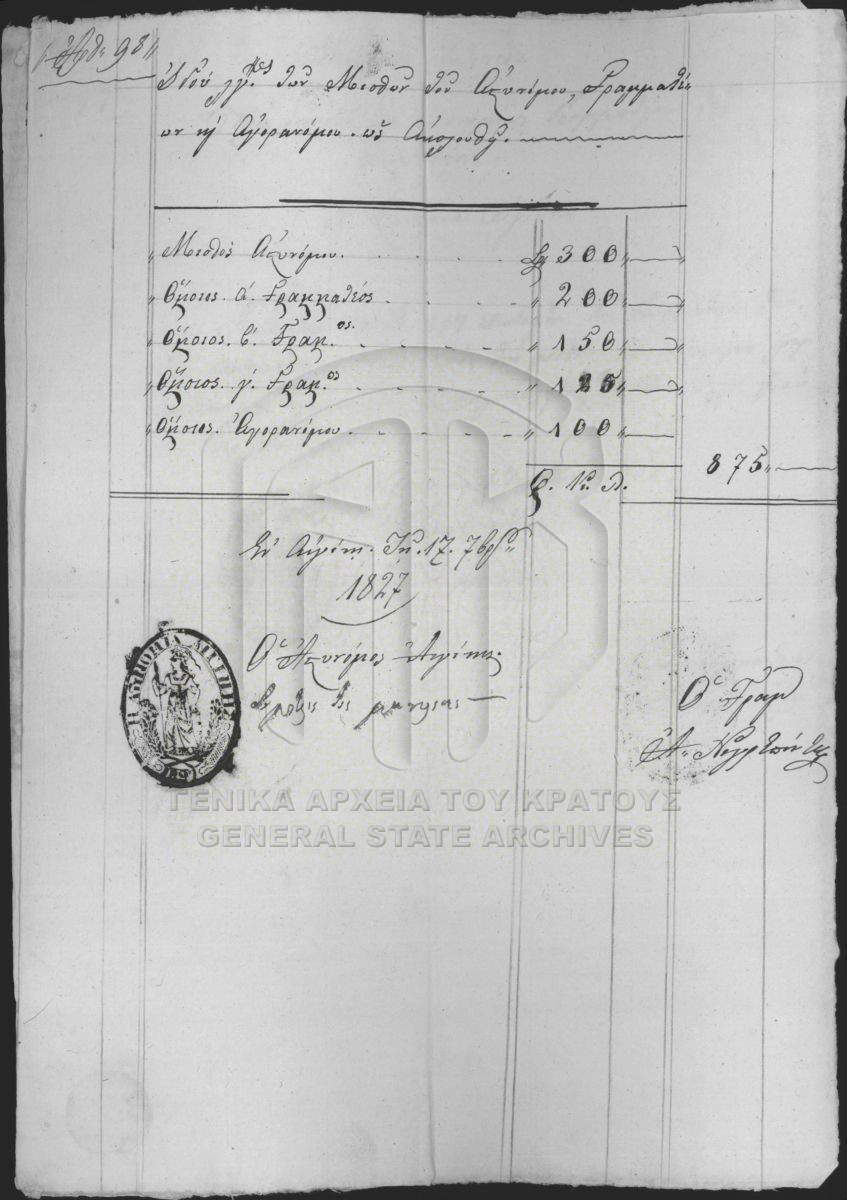 Ἀριθ. 98
Ἰδού λγ.μὸς τῶν Μισθῶν τοῦ Ἀστυνόμου, Γραμματέ-
ων κ Ἀγορανόμου. ὡς Ἀκολούθως.
Μισθὸς Ἀστυνόμου. 300
Ὅμοιος. α΄. Γραμματέος. 200
Ὅμοιος. β΄. Γραμ.ος 150
Ὅμοιος. γ΄. Γραμ.ος 125
Ὅμοιος. Ἀγορανόμου. 100
875
Ἐν Αἰγίνῃ. Τῇ. 17. 7βρίου
1827
Ὁ Ἀστυνόμος Αἰγίνης.
Ὁ Γραμ
Η ΑΣΤΥΝΟΜΙΑ ΑΙΓΙΝΗΣ
ΓΕΝΙΚΑ ΑΡΧΕΙΑ ΤΟΥ ΚΡΑΤΟΥΣ
GENERAL STATE ARCHIVES